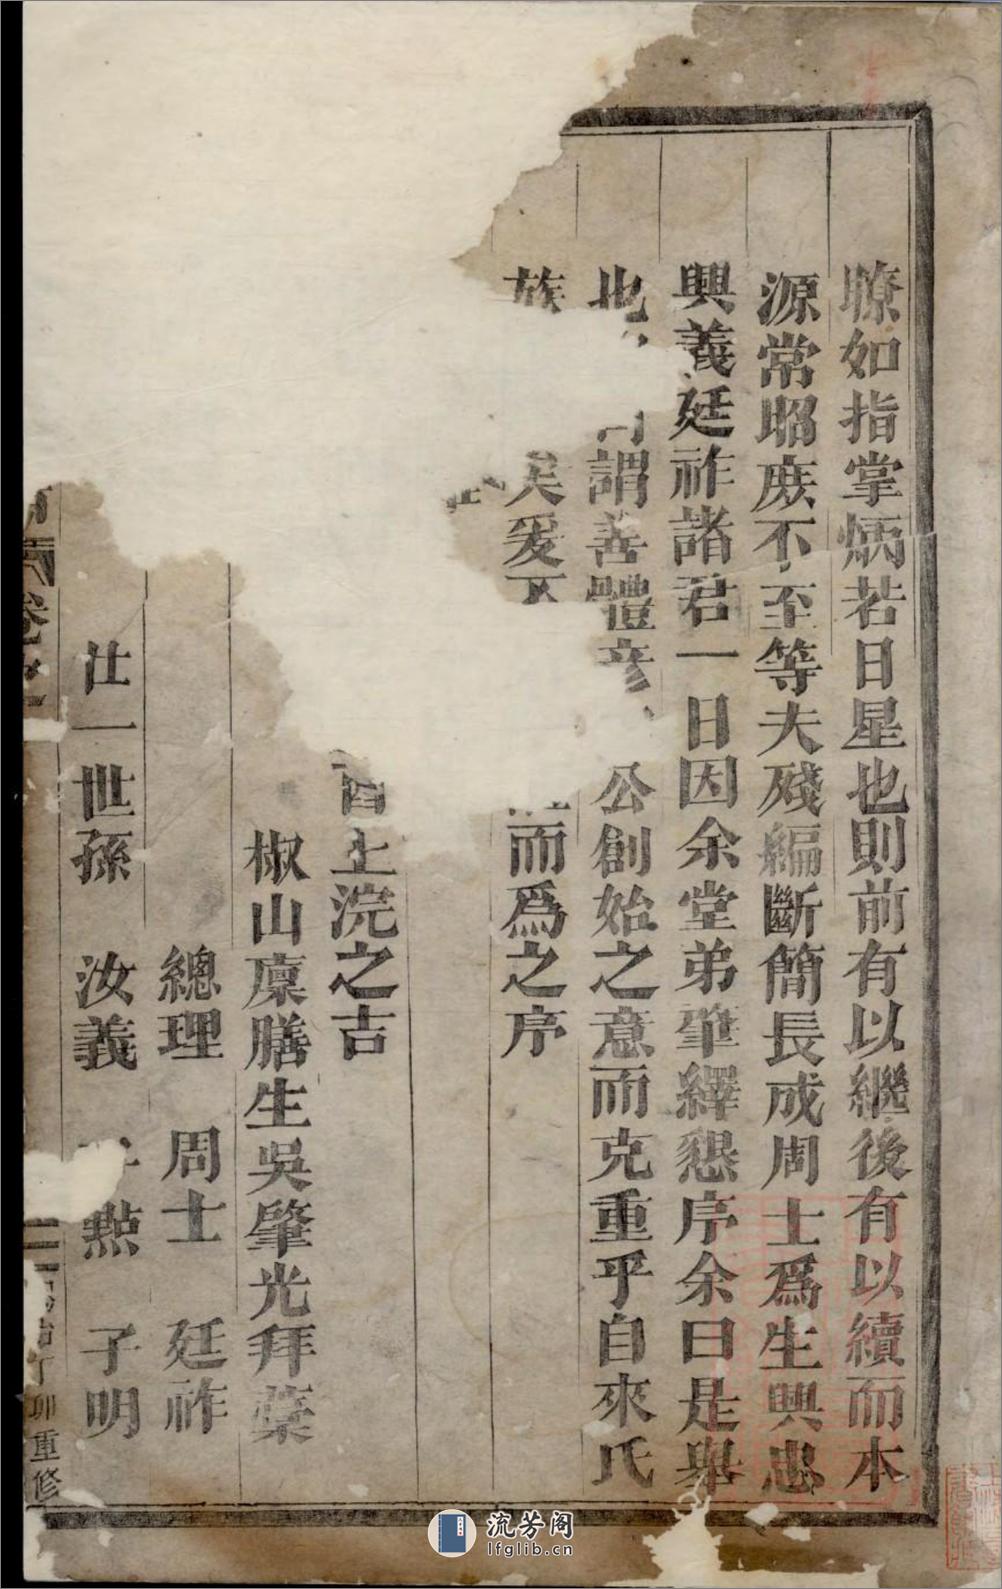 瞭如指掌炳若日星也則前有以繼後有以續而本
源常昭庶不至等夫殘編斷簡長成周士爲生興忠
興義廷祚諸君一日因余堂弟肇繹懇序余曰是舉
也 謂善體彦 公創始之意而克重乎自來氏
族 矣爰 而爲之序
上浣之吉
椒山廩膳生吳肇光拜藁
總理 周士 廷祚
廿一世孫 汝義 點 子明
卷之
丁卯重修
流芳阁
lfglib.cn